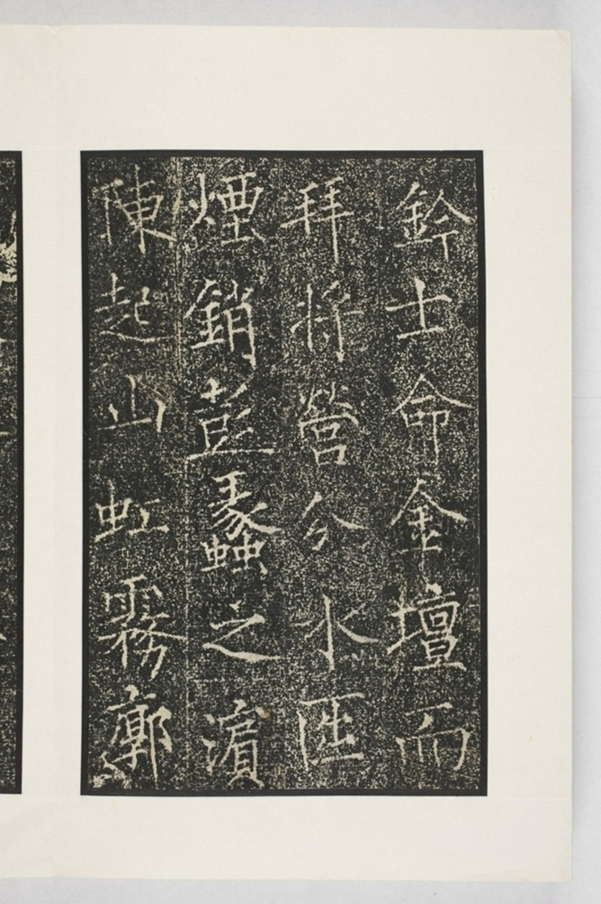 鈐士命金壇而
拜將營分水
煙銷彭蠡之濱
陳起山虹霧廓